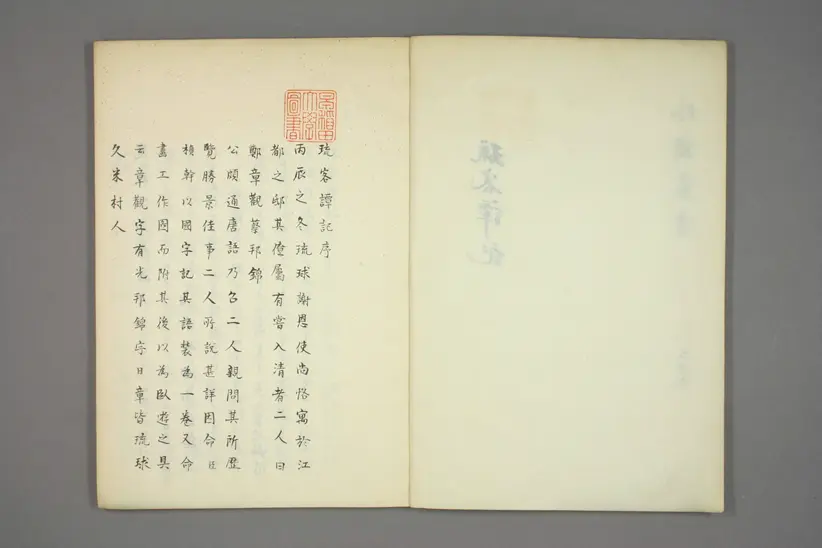 琉客譚記序
丙辰之冬琉球謝恩使尚恪寓於江
都之邸其僚屬有嘗入清者二人曰
鄭章觀蔡邦錦
公頗通唐語乃召二人親問其所歷
覽勝景佳事二人所說甚詳因命臣
楨幹以國字記其語裝為一卷又命
畫工作圖而附其後以為臥遊之具
云章觀字有光邦錦字日章皆琉球
久米村人
琉客譚記